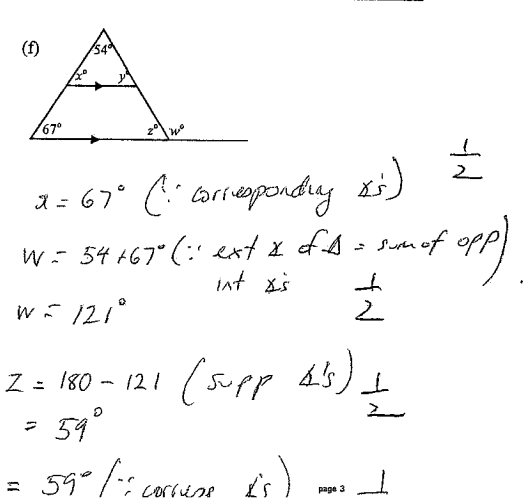 (f)
54°
x° y°
67° z° w°
x = 67° (∵ corresponding ∡'s) 1/2
w = 54+67° (∵ ext ∡ of Δ = sum of opp
int ∡'s 1/2 ) .
w = 121°
z = 180 - 121 (supp ∡'s) 1/2
= 59°
= 59° (∵ ∡'s) page 3 1